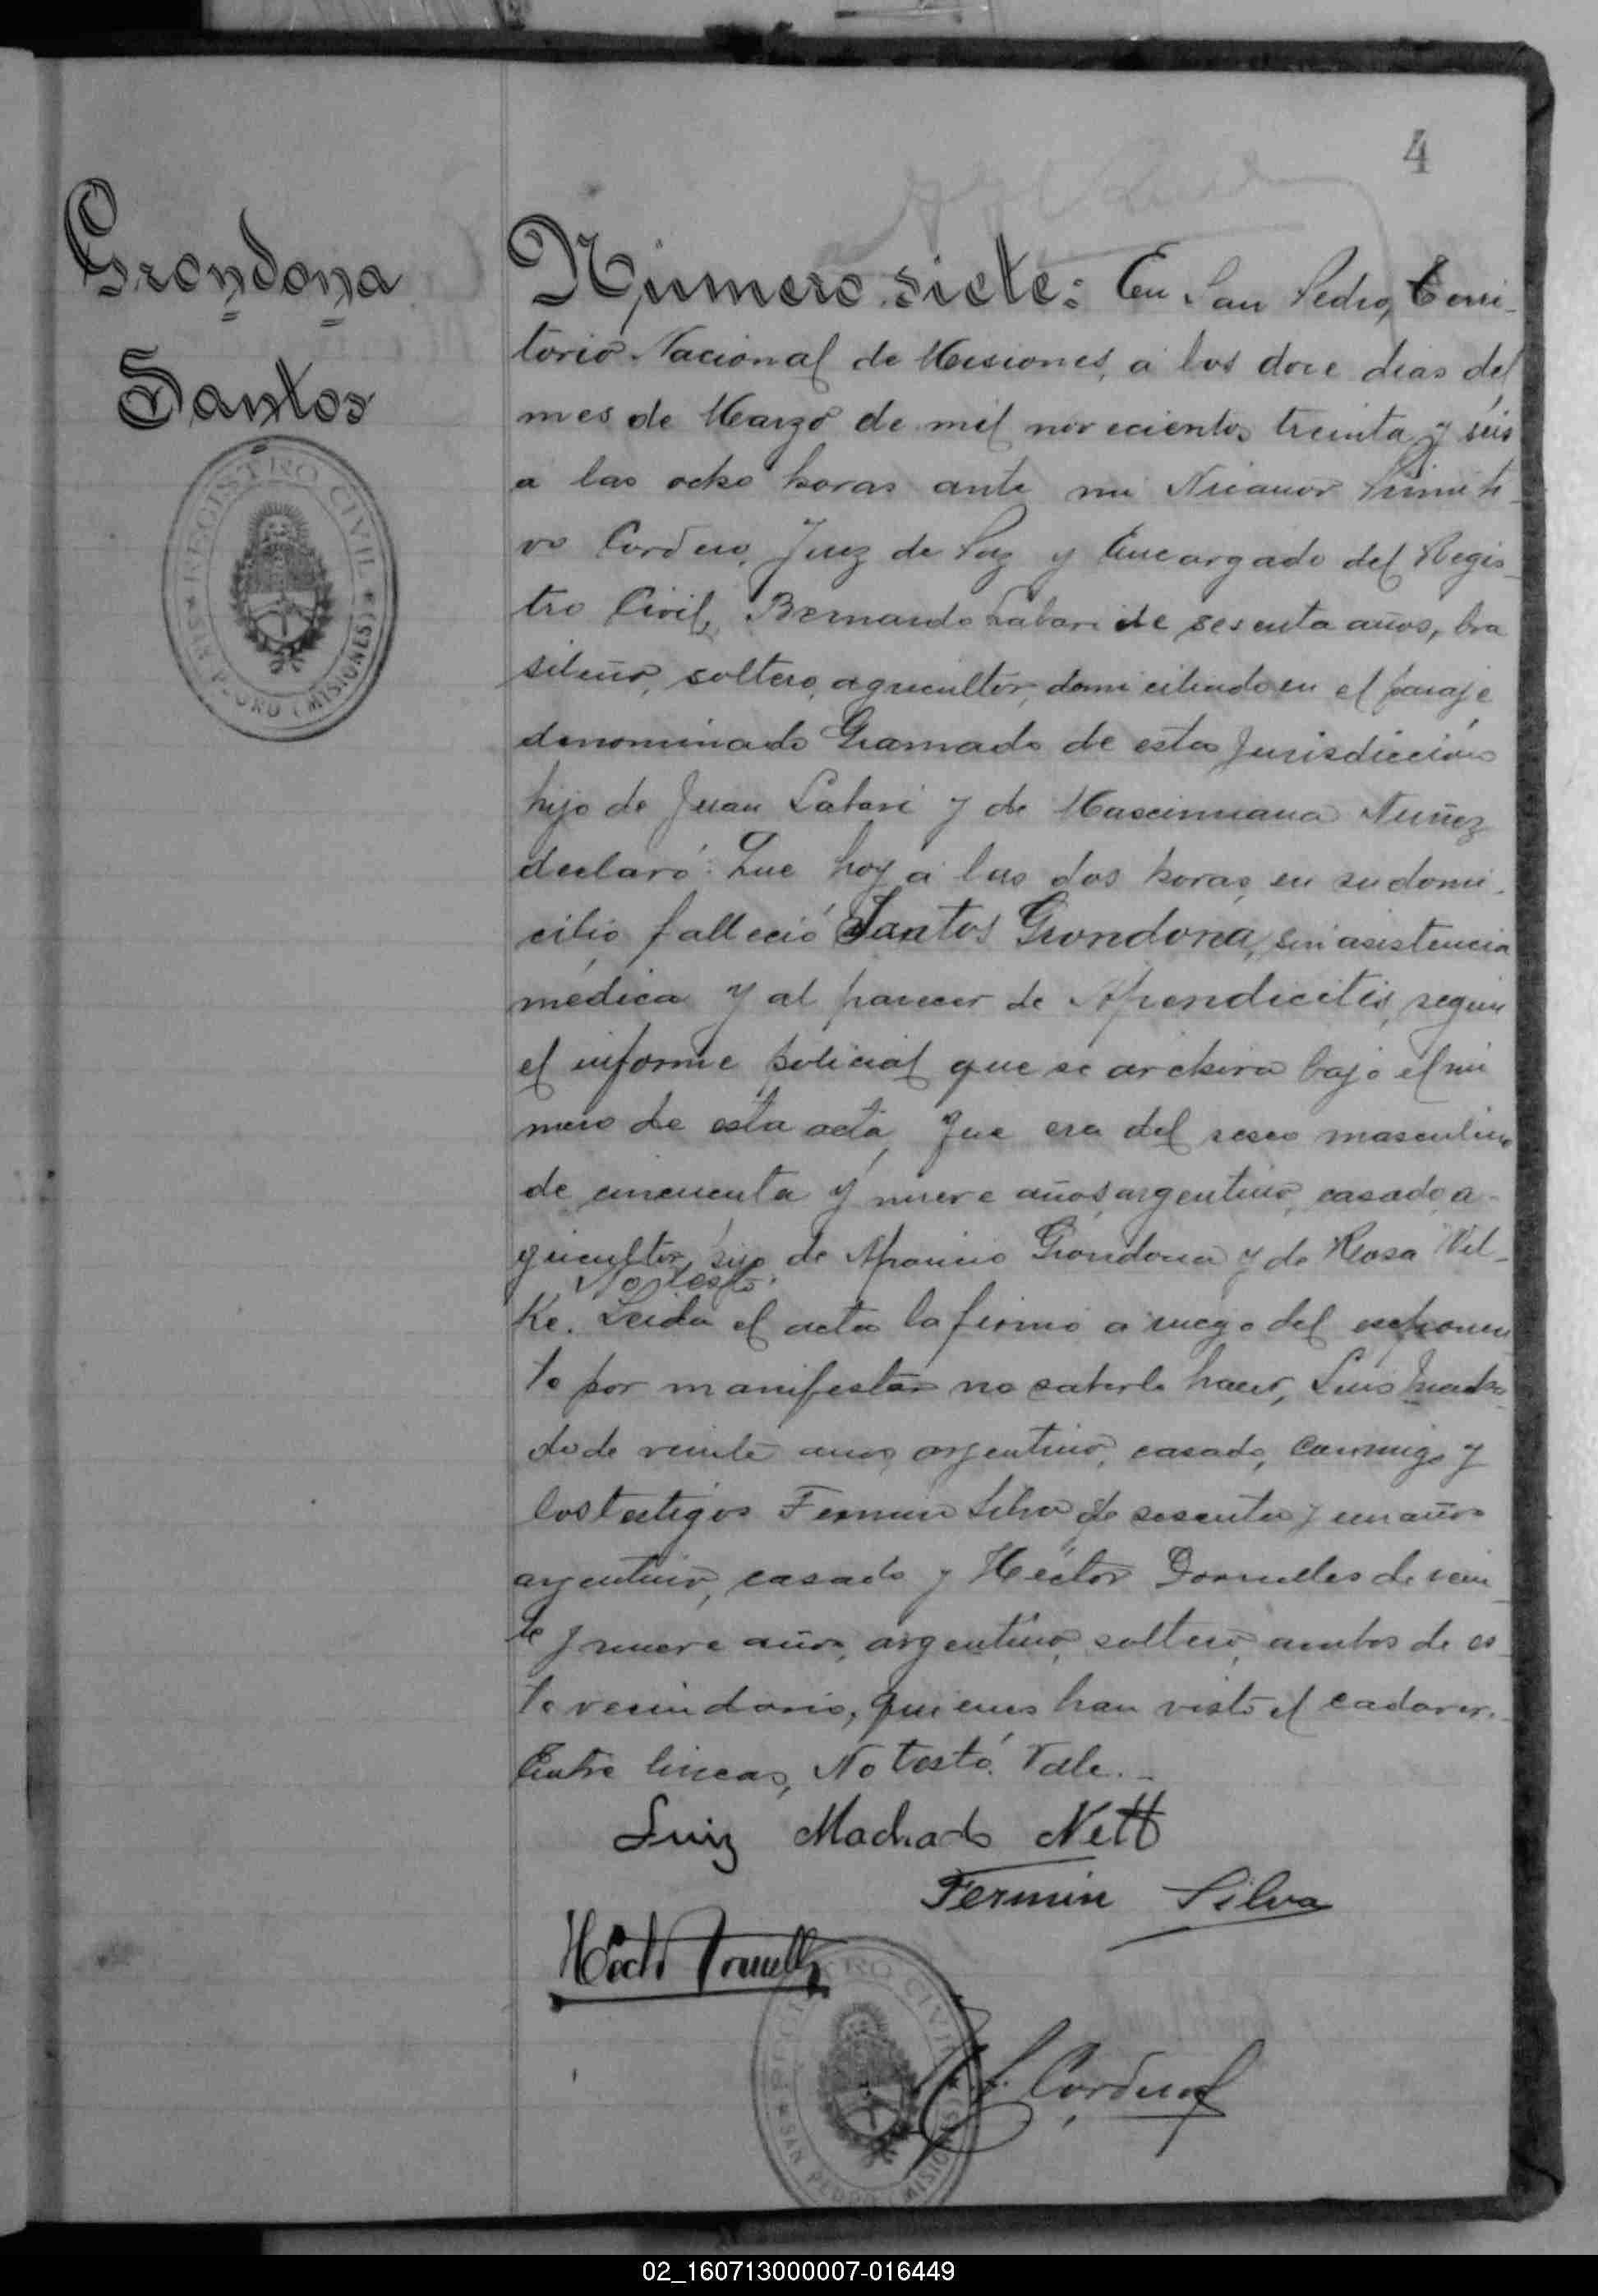 4
Grondona
Santos
REGISTRO CIVIL
SAN PEDRO (MISIONES)
Número siete: En San Pedro, Terri-
torio Nacional de Misiones, a los doce dias del
mes de Marzo de mil novecientos treinta y seis
a las ocho horas ante mi Nicanor Primiti-
vo Cordero, Juez de Paz y Encargado del Regis-
tro Civil, Bernardo de sesenta años, bra
sileño, soltero, agricultor, domiciliado en el paraje
denominado Gramado de esta Jurisdicción
hijo de Juan y de Mascimiana Nuñez
declaró: Que hoy a las dos horas, en su domi-
cilio falleció Santos Grondona, sin asistencia
médica y al parecer de Apendicitis, segun
el informe policial que se archiva bajo el nú
mero de esta acta, Que era del sexo masculino
de cincuenta y nueve años, argentino, casado, a-
gricultor, hijo de Aparicio Grondona y de Rosa Wil-
No testó.
ke. Leida el acta la firmó a ruego del esponen
te por manifestar no saberlo hacer, Luis Macha-
do de veinte años argentino, casado, conmigo y
los testigos Fermin Silva de sesenta y un años
argentino, casado y Héctor Dornelles de vein
te y nueve años, argentino, soltero, ambos de es
te vecindario, quienes han visto el cadaver.-
Entre lineas, No testó. Vale.-
Luiz Machado Nett
Fermin Silva
REGISTRO CIVIL
SAN PEDRO (MISIONES)
02_160713000007-016449